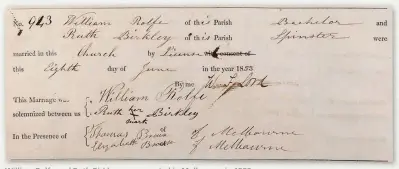 No. 943 William Rolfe of this Parish Bachelor and
Ruth Birkley of this Parish Spinster were
married in this Church by License with consent of
this Eighth day of June in the year 1853
By me
This Marriage was
solemnized between us
William Rolfe
Ruth her mark Birkley
In the Presence of
Thomas of Melbourne
Elizabeth of Melbourne